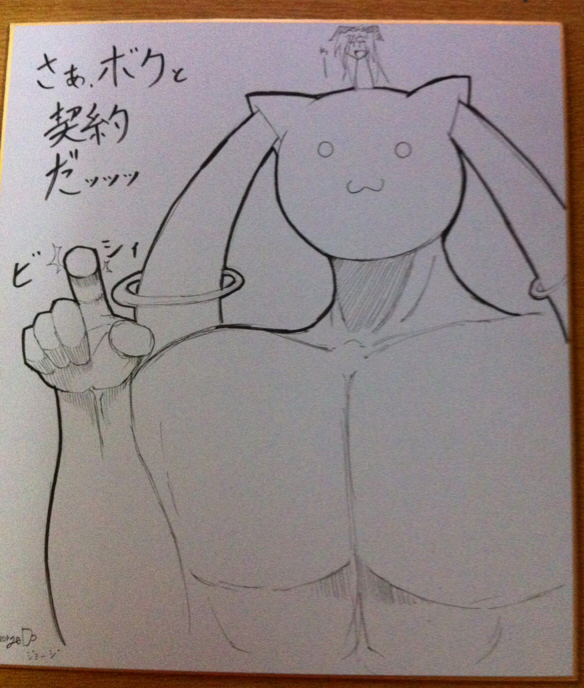 さぁ、ボクと
契約
だッッッ
ビシィ
ジョージ